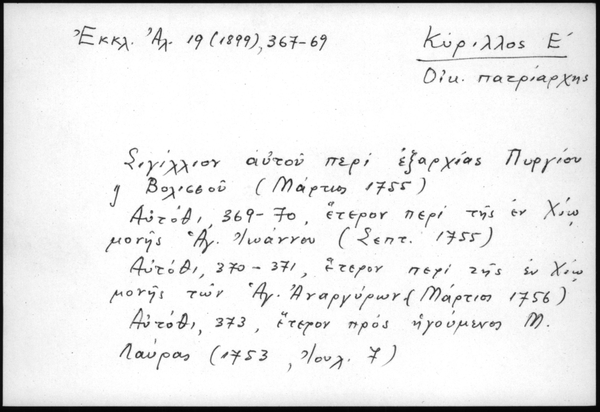 Ἐκκλ. Ἀλ. 19 (1899), 367-69
Κύριλλος Ε´
Οἰκ. πατριάρχης
Σιγίλλιον αὐτοῦ περί ἐξαρχίας Πυργίου
ἤ Βολισσοῦ (Μάρτιος 1755)
Αὐτόθι, 369-70, ἕτερον περί τῆς ἐν Χίῳ
μονῆς Ἁγ. Ἰωάννου (Σεπτ. 1755)
Αὐτόθι, 370-371, ἕτερον περί τῆς ἐν Χίῳ
μονῆς τῶν Ἁγ. Ἀναργύρων (Μάρτιος 1756)
Αὐτόθι, 373, ἕτερον πρός ἡγούμενος Μ.
Λαύρας (1753, Ἰουλ. 7)